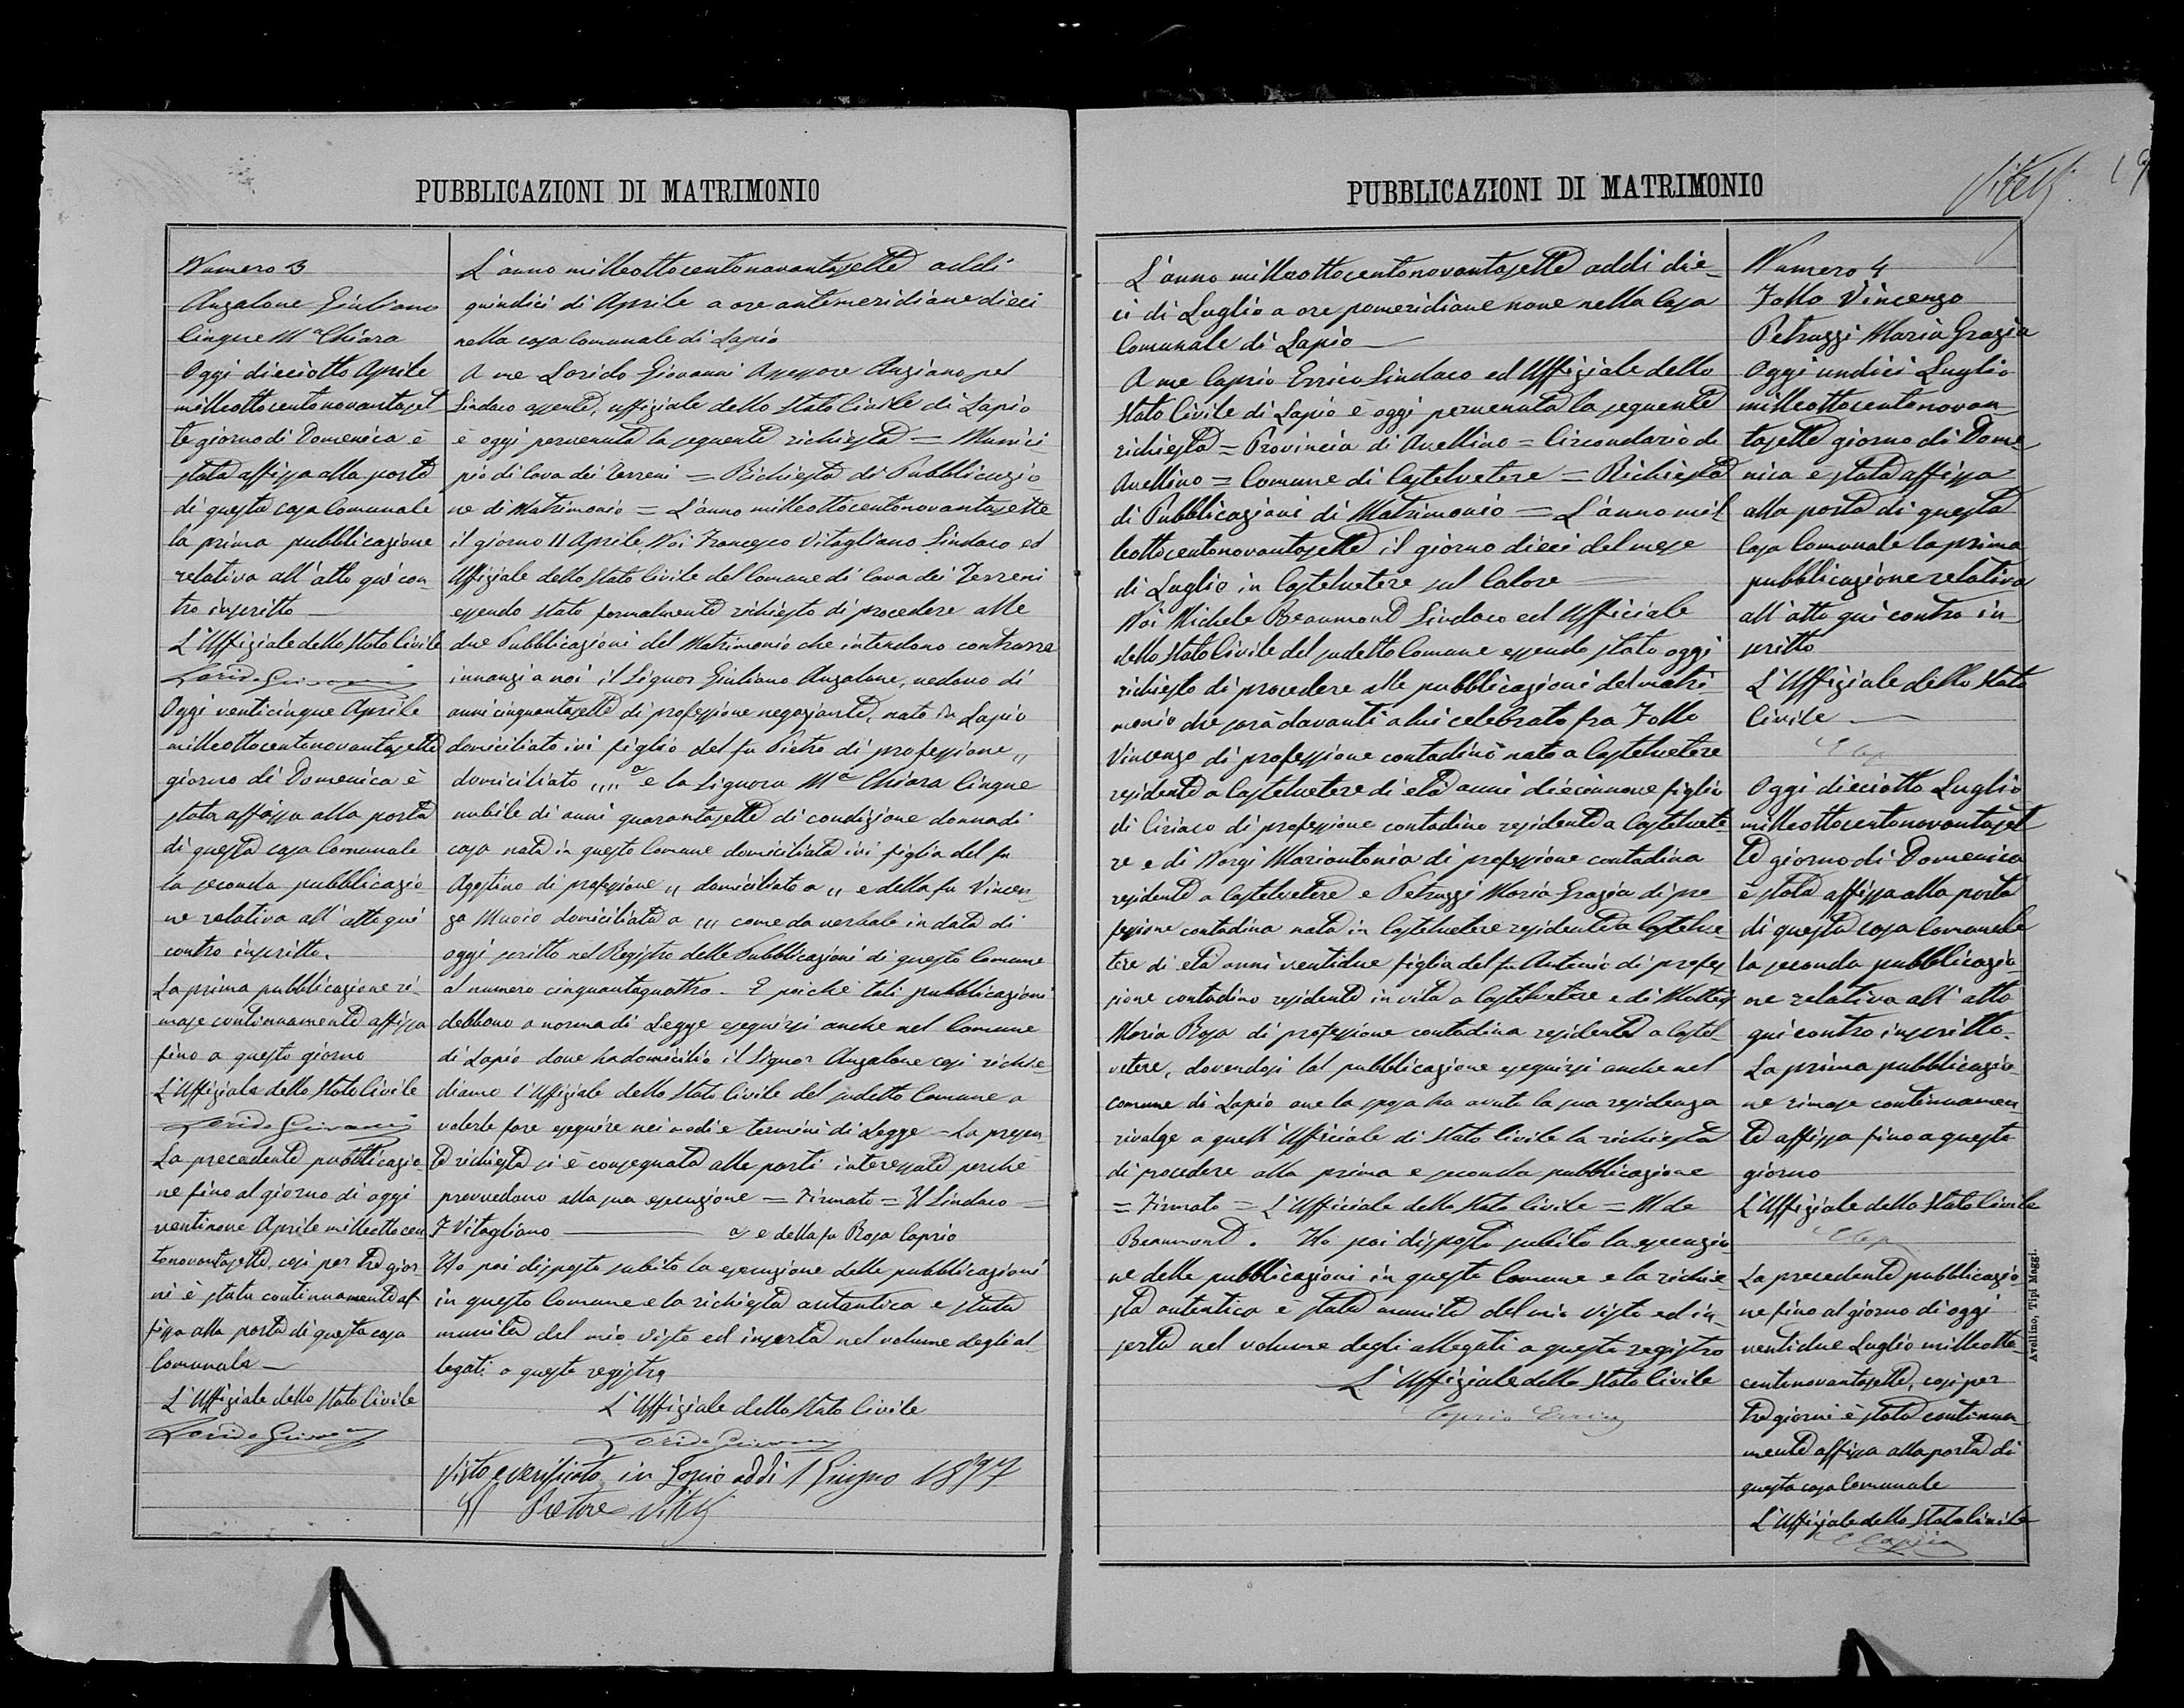 PUBBLICAZIONI DI MATRIMONIO
Numero 3
Anzalone Giuliano
Cinque Mª Chiara
Oggi dieciotto Aprile
milleottocentonovantaset
te giorno di Domenica è
stata affissa alla porta
di questa casa Comunale
la prima pubblicazione
relativa all'atto quì con
tro inscritto
L'Uffiziale dello Stato Civile
Lorido Giovanni
Oggi venticinque Aprile
milleottocentonovantasette
giorno di Domenica è
stata affissa alla porta
di questa casa Comunale
la seconda pubblicazio
ne relativa all'atto quì
contro inscritto.
La prima pubblicazione ri-
mase continuamente affissa
fino a questo giorno
L'Uffiziale dello Stato Civile
Lorido Giovanni
La precedente pubblicazio
ne fino al giorno di oggi
ventinove Aprile milleottocen
tonovantasette, così per tre gior-
ni è stata continuamente af
fissa alla porta di questa casa
Comunale
L'Uffiziale dello Stato Civile
Lorido Giovanni
L'anno milleottocentonovantasette addì
quindici di Aprile a ore antimeridiane dieci
nella casa Comunale di Lapio
A me Lorido Giovanni Assessore Anziano pel
Sindaco assente, uffiziale dello Stato Civile di Lapio
è oggi pervenuta la seguente richiesta = Munici
pio di Cava dei Terreni = Richiesta di Pubblicazio
ne di Matrimonio = L'anno milleottocentonovantasette
il giorno 11 Aprile, Noi Francesco Vitagliano Sindaco ed
Uffiziale dello Stato Civile del Comune di Cava dei Terreni
essendo stato formalmente richiesto di procedere alle
due Pubblicazioni del Matrimonio che intendono contrarre
innanzi a noi il Signor Giuliano Anzalone, vedovo di
anni cinquantasette di professione negoziante, nato in Lapio
domiciliato ivi figlio del fu Pietro di professione ,,
domiciliato ,,,, a e la Signora Mª Chiara Cinque
nubile di anni quarantasette di condizione donna di
casa nata in questo Comune domiciliata ivi figlia del fu
Agostino di professione ,, domiciliato a ,, e della fu Vincen-
za domiciliata a ,,, come da verbale in data di
oggi scritto nel Registro delle Pubblicazioni di questo Comune
al numero cinquantaquattro - E poichè tali pubblicazioni
debbono a norma di Legge eseguirsi anche nel Comune
di Lapio dove ha domicilio il Signor Anzalone così richie-
diamo l'Uffiziale dello Stato Civile del sudetto Comune a
volerle fare eseguire nei modi e termini di Legge - La presen
te richiesta si è consegnata alle parti interessate perchè
provvedano alla sua esecuzione = Firmato = Il Sindaco =
F Vitagliano a e della fu Rosa Caprio
Ho poi disposto subito la esecuzione delle pubblicazioni
in questo Comune e la richiesta autentica e stata
munita del mio visto ed inserta nel volume degli al
legati a questo registro
L'Uffiziale dello Stato Civile
Lorido Giovanni
Visto e verificato in Lapio addì 1 Giugno 1897
Il Pretore Vitelli
PUBBLICAZIONI DI MATRIMONIO
Vitelli
19
L'anno milleottocentonovantasette addì die-
ci di Luglio a ore pomeridiane nove nella Casa
Comunale di Lapio
A me Caprio Errico Sindaco ed Uffiziale dello
Stato Civile di Lapio è oggi pervenuta la seguente
richiesta = Provincia di Avellino = Circondario di
Avellino = Comune di Castelvetere = Richiesta
di Pubblicazioni di Matrimonio = L'anno mil
leottocentonovantasette il giorno dieci del mese
di Luglio in Castelvetere sul Calore
Noi Michele Beaumont Sindaco ed Ufficiale
dello Stato Civile del sudetto Comune essendo stato oggi
richiesto di procedere alle pubblicazioni del matri-
monio che sarà davanti a lui celebrato fra Follo
Vincenzo di professione contadino nato a Castelvetere
residente a Castelvetere di età anni diecinnove figlio
di Ciriaco di professione contadino residente a Castelvete-
re e di Nargi Mariantonia di professione contadina
residente a Castelvetere e Petruzzi Maria Grazia di pro
fessione contadina nata in Castelvetere residente a Castelve-
tere di età anni ventidue figlia del fu Antonio di profes-
sione contadino residente in vita a Castelvetere e di Matteis
Maria Rosa di professione contadina residente a Castel-
vetere, dovendosi tal pubblicazione eseguirsi anche nel
comune di Lapio ove la sposa ha avuto la sua residenza
rivolge a quell'Ufficiale di stato civile la richiesta
di procedere alla prima e seconda pubblicazione
= Firmato = L'Ufficiale dello Stato Civile = M de
Beaumont. Ho poi disposto subito la esecuzio
ne delle pubblicazioni in questo Comune e la richie
sta autentica è stata munita del mio visto ed in-
serta nel volume degli allegati a questo registro
L'Uffiziale dello Stato Civile
Caprio Errico
Numero 4
Follo Vincenzo
Petruzzi Maria Grazia
Oggi undici Luglio
milleottocentonovan
tasette giorno di Dome
nica è stata affissa
alla porta di questa
Casa Comunale la prima
pubblicazione relativa
all'atto quì contro in
scritto
L'Uffiziale dello Stato
Civile
Oggi dieciotto Luglio
milleottocentonovantaset
te giorno di Domenica
è stata affissa alla porta
di questa casa Comunale
la seconda pubblicazio-
ne relativa all'atto
qui contro inscritto.
La prima pubblicazio-
ne rimase continuamen
te affissa fino a questo
giorno
L'Uffiziale dello Stato Civile
La precedente pubblicazio
ne fino al giorno di oggi
ventidue Luglio milleotto-
centonovantasette, così per
tre giorni è stata continua-
mente affissa alla porta di
questa casa Comunale
L'Uffiziale dello Stato Civile
E Caprio
Avellino, Tipi Maggi.